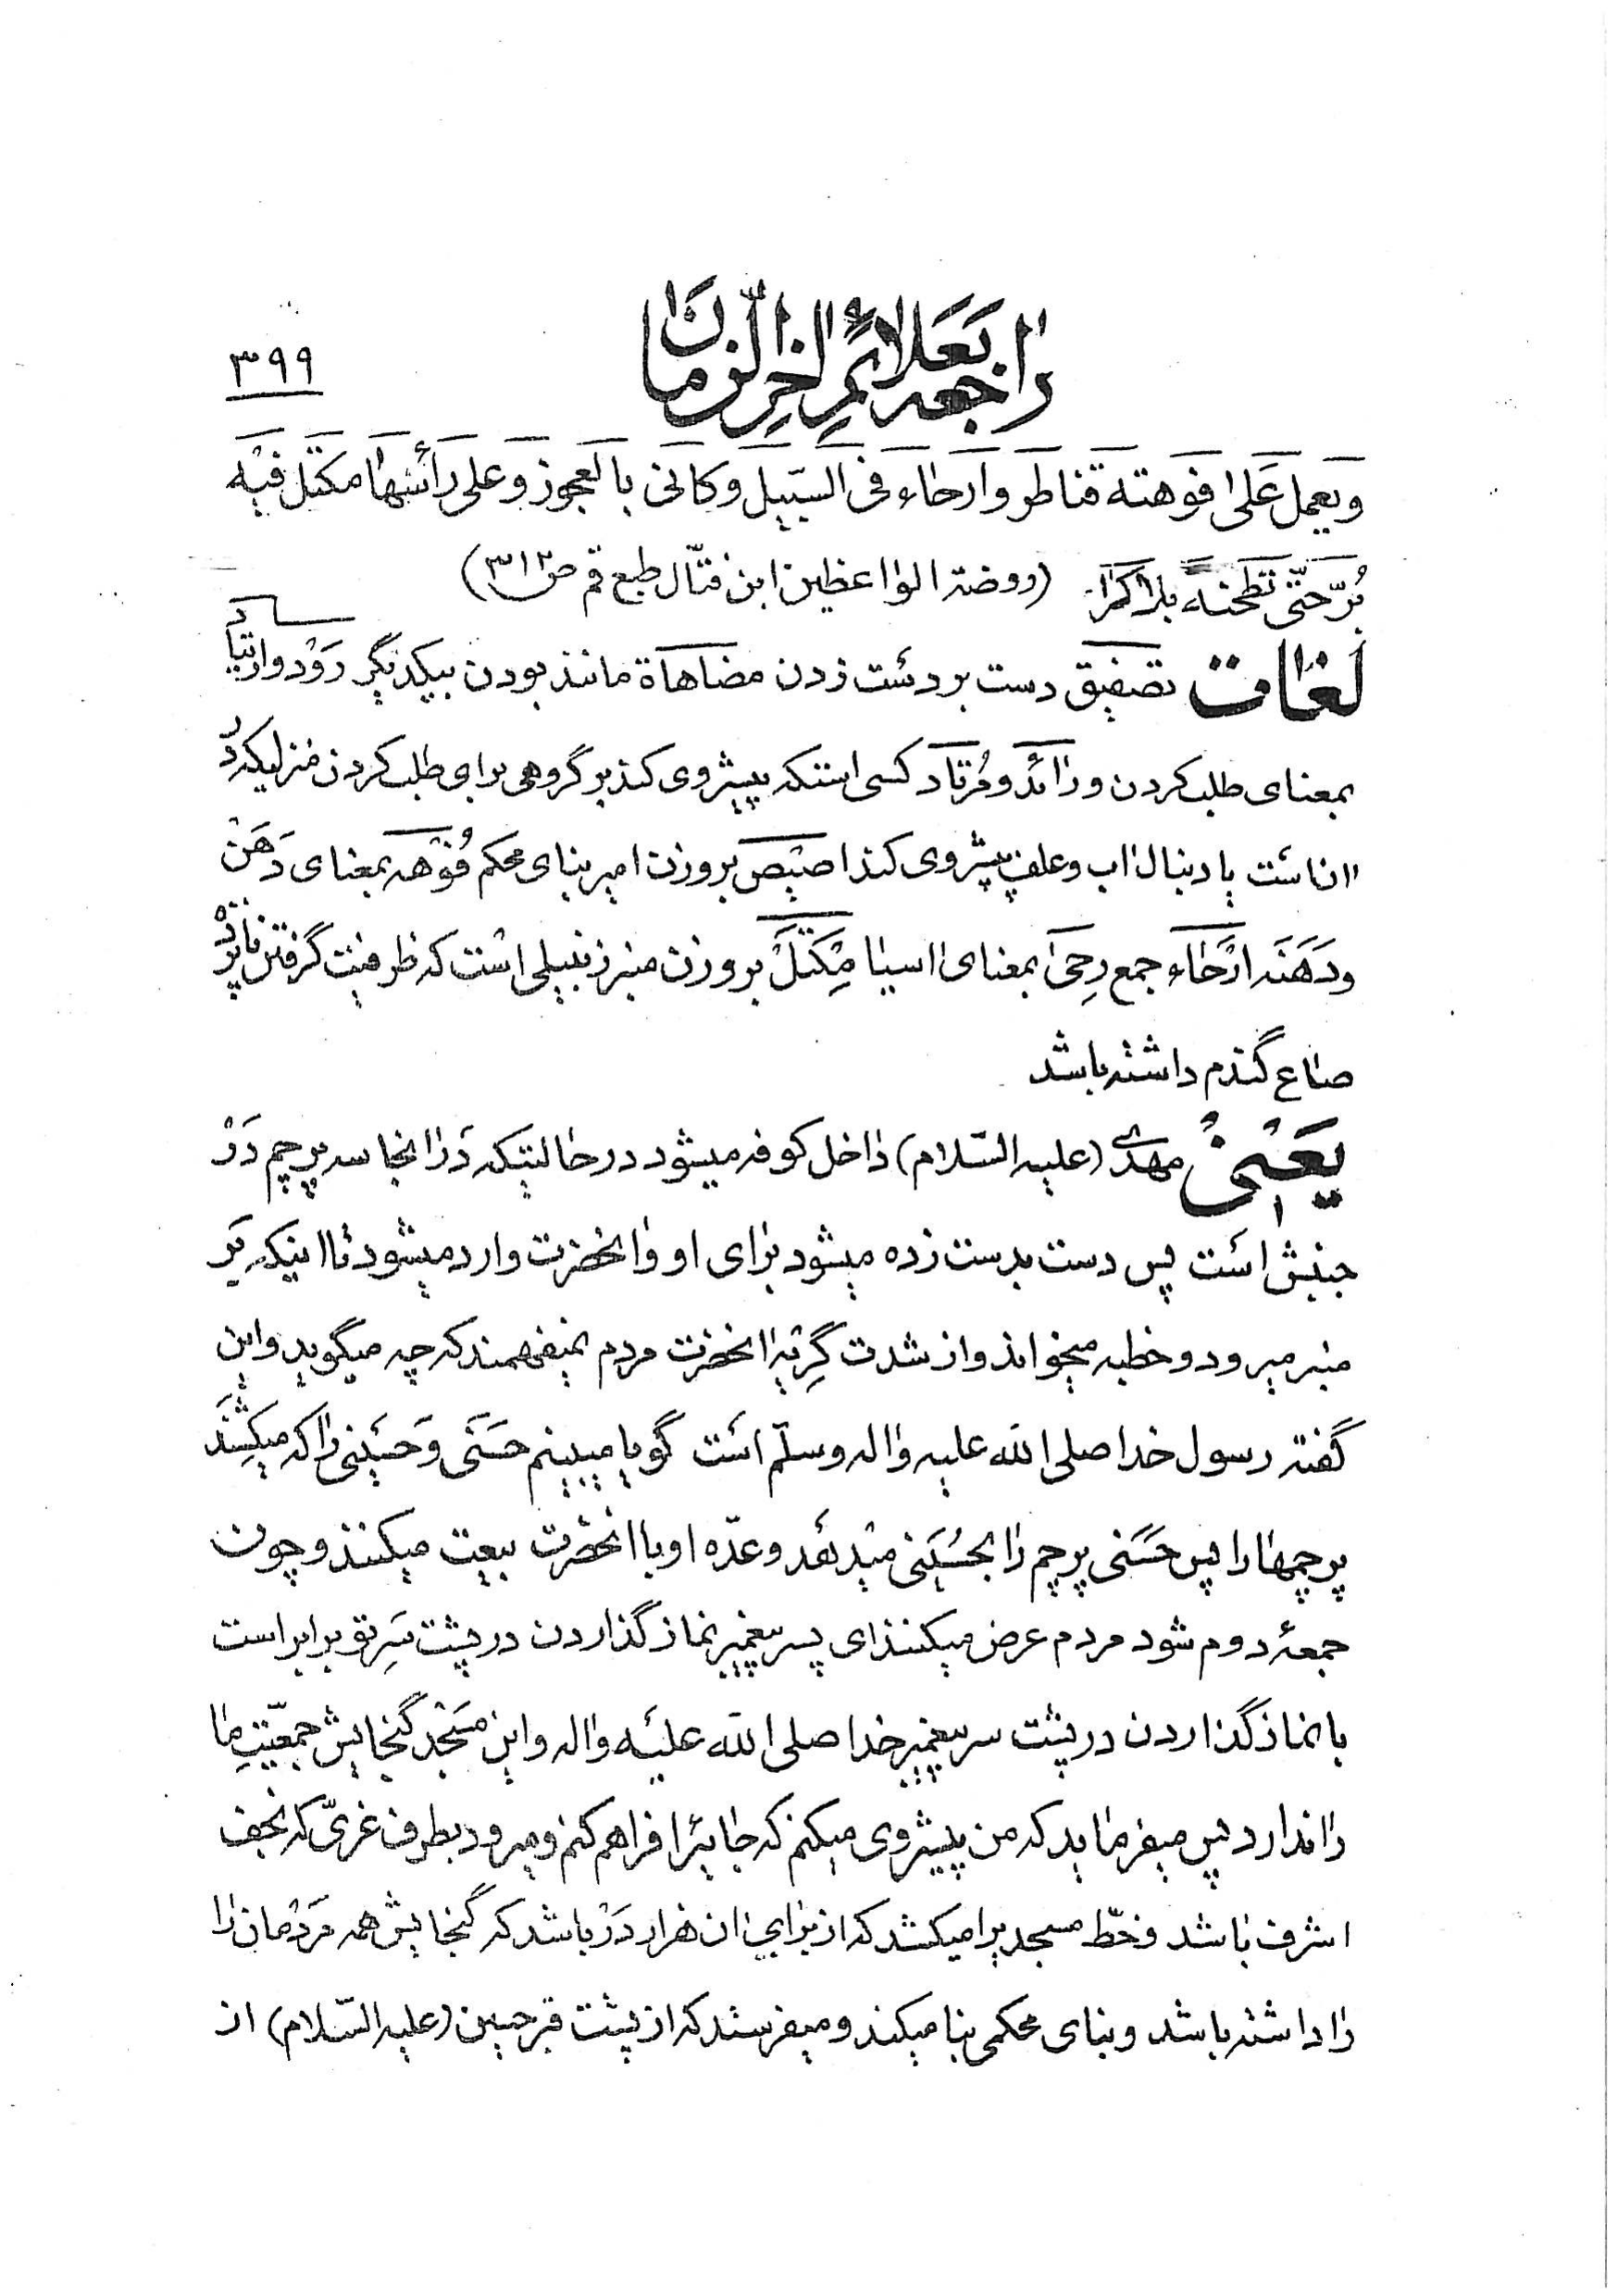 راجعه بعلائم اخر الزمان
۳۹۹
و یعمل علی افوهته قناطر و ارحاء فی السّبیل و کانی بالعجوز و علی رأسها مکتل فیه
برّ حتّی تطحنه بلا کراء (روضة الواعظین ابن فتّال طبع قم ص۳۱۲)
لغات تصفیق دست بر دست زدن مضاهاة مانند بودن بیکدیگر رَوْد و ارتیاد
بمعنای طلب کردن و رائد و مُرتاد کسی استکه پیشروی کند بر گروهی برای طلب کردن منزلیکه دُ
اناست یا دنبال اب و علف پیشروی کند اصیص بر وزن امیر بنای محکم فُوّهه بمعنای دَهَنْ
و دَهَنَه ارْحاء جمع رحیٰ بمعنای اسیا مِکْتَلْ بر وزن منبر زنبیلی است که ظرفیت گرفتن پانزد
صاع گندم داشته باشد
یَعْنی مهدی (علیه السّلام) داخل کوفه میشود در حالتیکه در انجا سه پرچم دَرْ
جنبش است پس دست بدست زده میشود برای او و انحضرت وارد میشود تا اینکه بَر
منبر میرود و خطبه میخواند و از شدت گِریَۀ انحضرت مردم نمیفهمند که چه میگوید و این
گفته رسول خدا صلی الله علیه و اله و سلّم است گویا میبینم حَسَنی و حُسَینی را که میکِشَند
پرچمها را پس حَسَنی پرچم را بحُسَینی میدهد و عدّه او با انحضرت بیعت میکنند و چون
جمعۀ دوم شود مردم عرض میکنند ای پسر پیغمبر نماز گذاردن در پشت سَرِ تو برابر است
با نماز گذاردن در پشت سر پیغمبر خدا صلی الله علیه و اله و این مَسْجد گنجایش جمعّیتِ ما
را ندارد پس میفرماید که من پیشروی میکنم که جا برا فراهم کنم و میرود بطرف غریّ که نجف
اشرف باشد و خطّ مسجدیرا میکشد که از برای ان هزار دَرْ باشد که گنجایش همه مَرْدمان را
را داشته باشد و بنای محکمی بنا میکند و میفرستد که از پشت قبر حسین (علیه السّلام) از